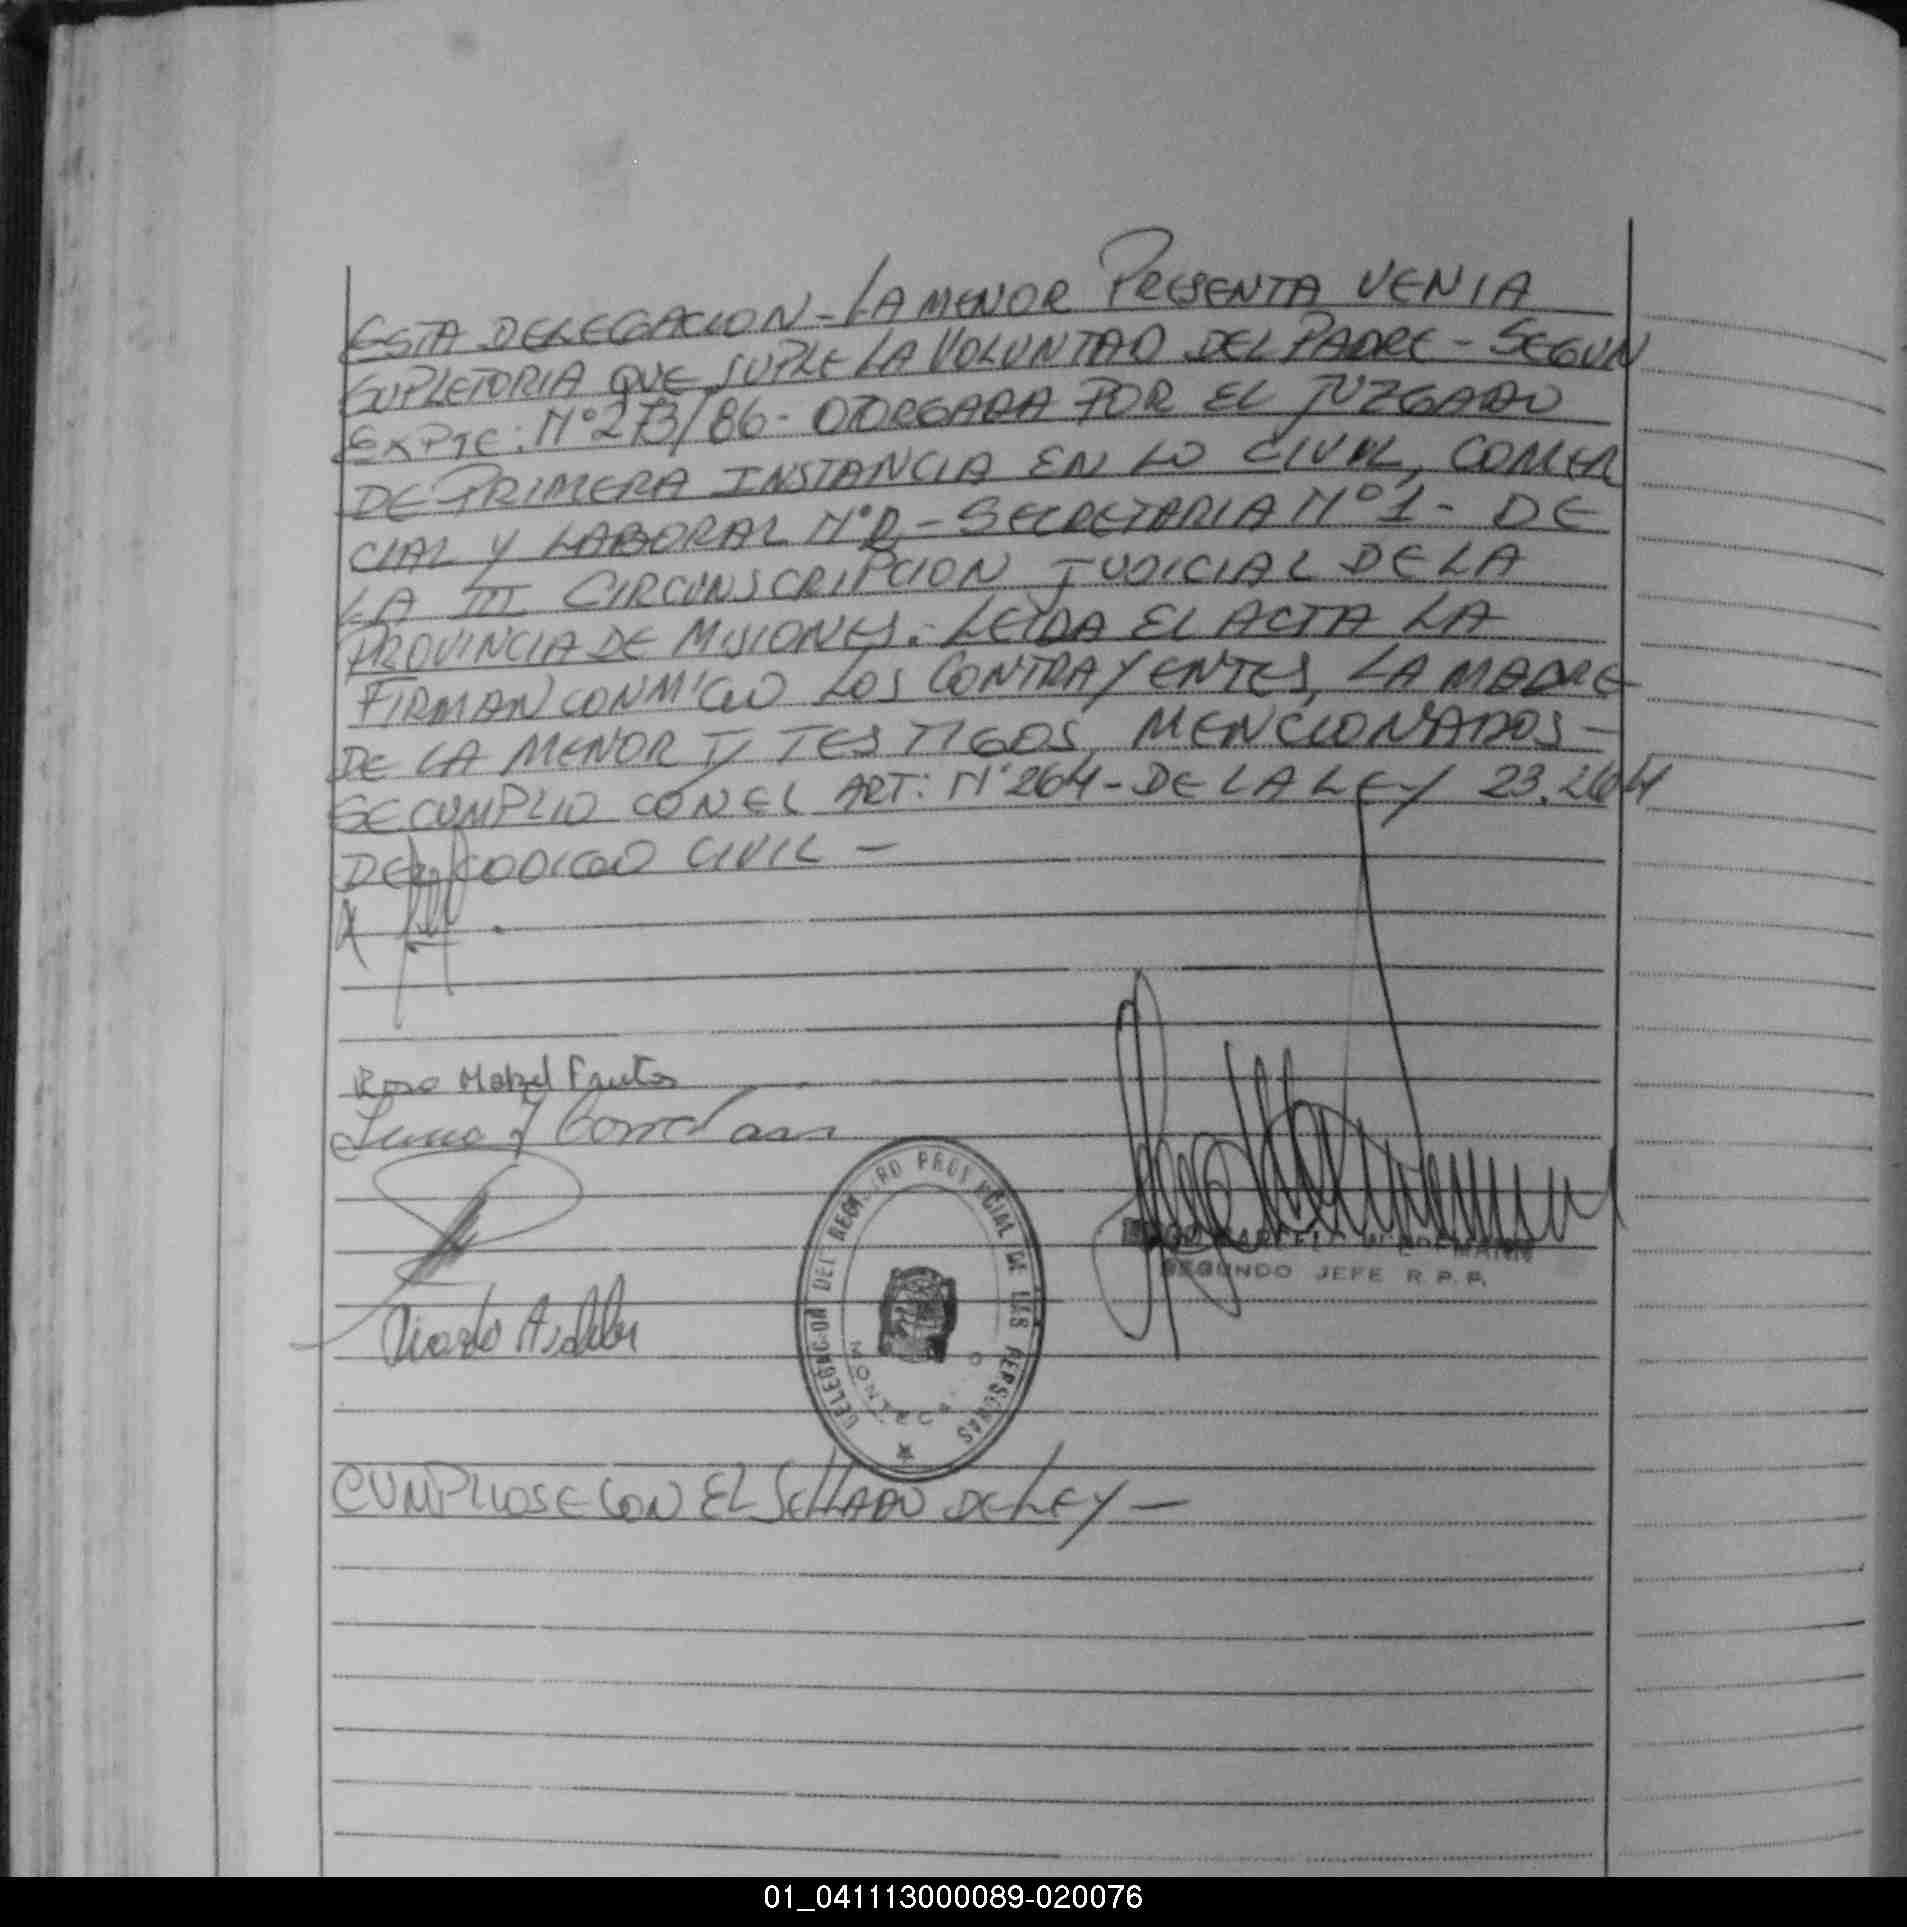 ESTA DELEGACION - LA MENOR PRESENTA VENIA
SUPLETORIA QUE SUPLE LA VOLUNTAD DEL PADRE - SEGUN
EXPTE: Nº 273/86 - OTORGADA POR EL JUZGADO
DE PRIMERA INSTANCIA EN LO CIVIL, COMER
CIAL Y LABORAL Nº - SECRETARIA Nº 1 - DE
LA III CIRCUNSCRIPCION JUDICIAL DE LA
PROVINCIA DE MISIONES.- LEIDA EL ACTA LA
FIRMAN CONMIGO LOS CONTRAYENTES, LA MADRE
DE LA MENOR Y TESTIGOS MENCIONADOS -
SE CUMPLIO CON EL ART: Nº 264 - DE LA LEY 23.264
DEL CODIGO CIVIL -
X
Rosa Mabel Frutos
DELEGACION DEL REGISTRO PROVINCIAL DE LAS PERSONAS
MONTECARLO
MARCELO WIEDEMANN
SEGUNDO JEFE R. P. P.
CUMPLIOSE CON EL SELLADO DE LEY -
01_041113000089-020076